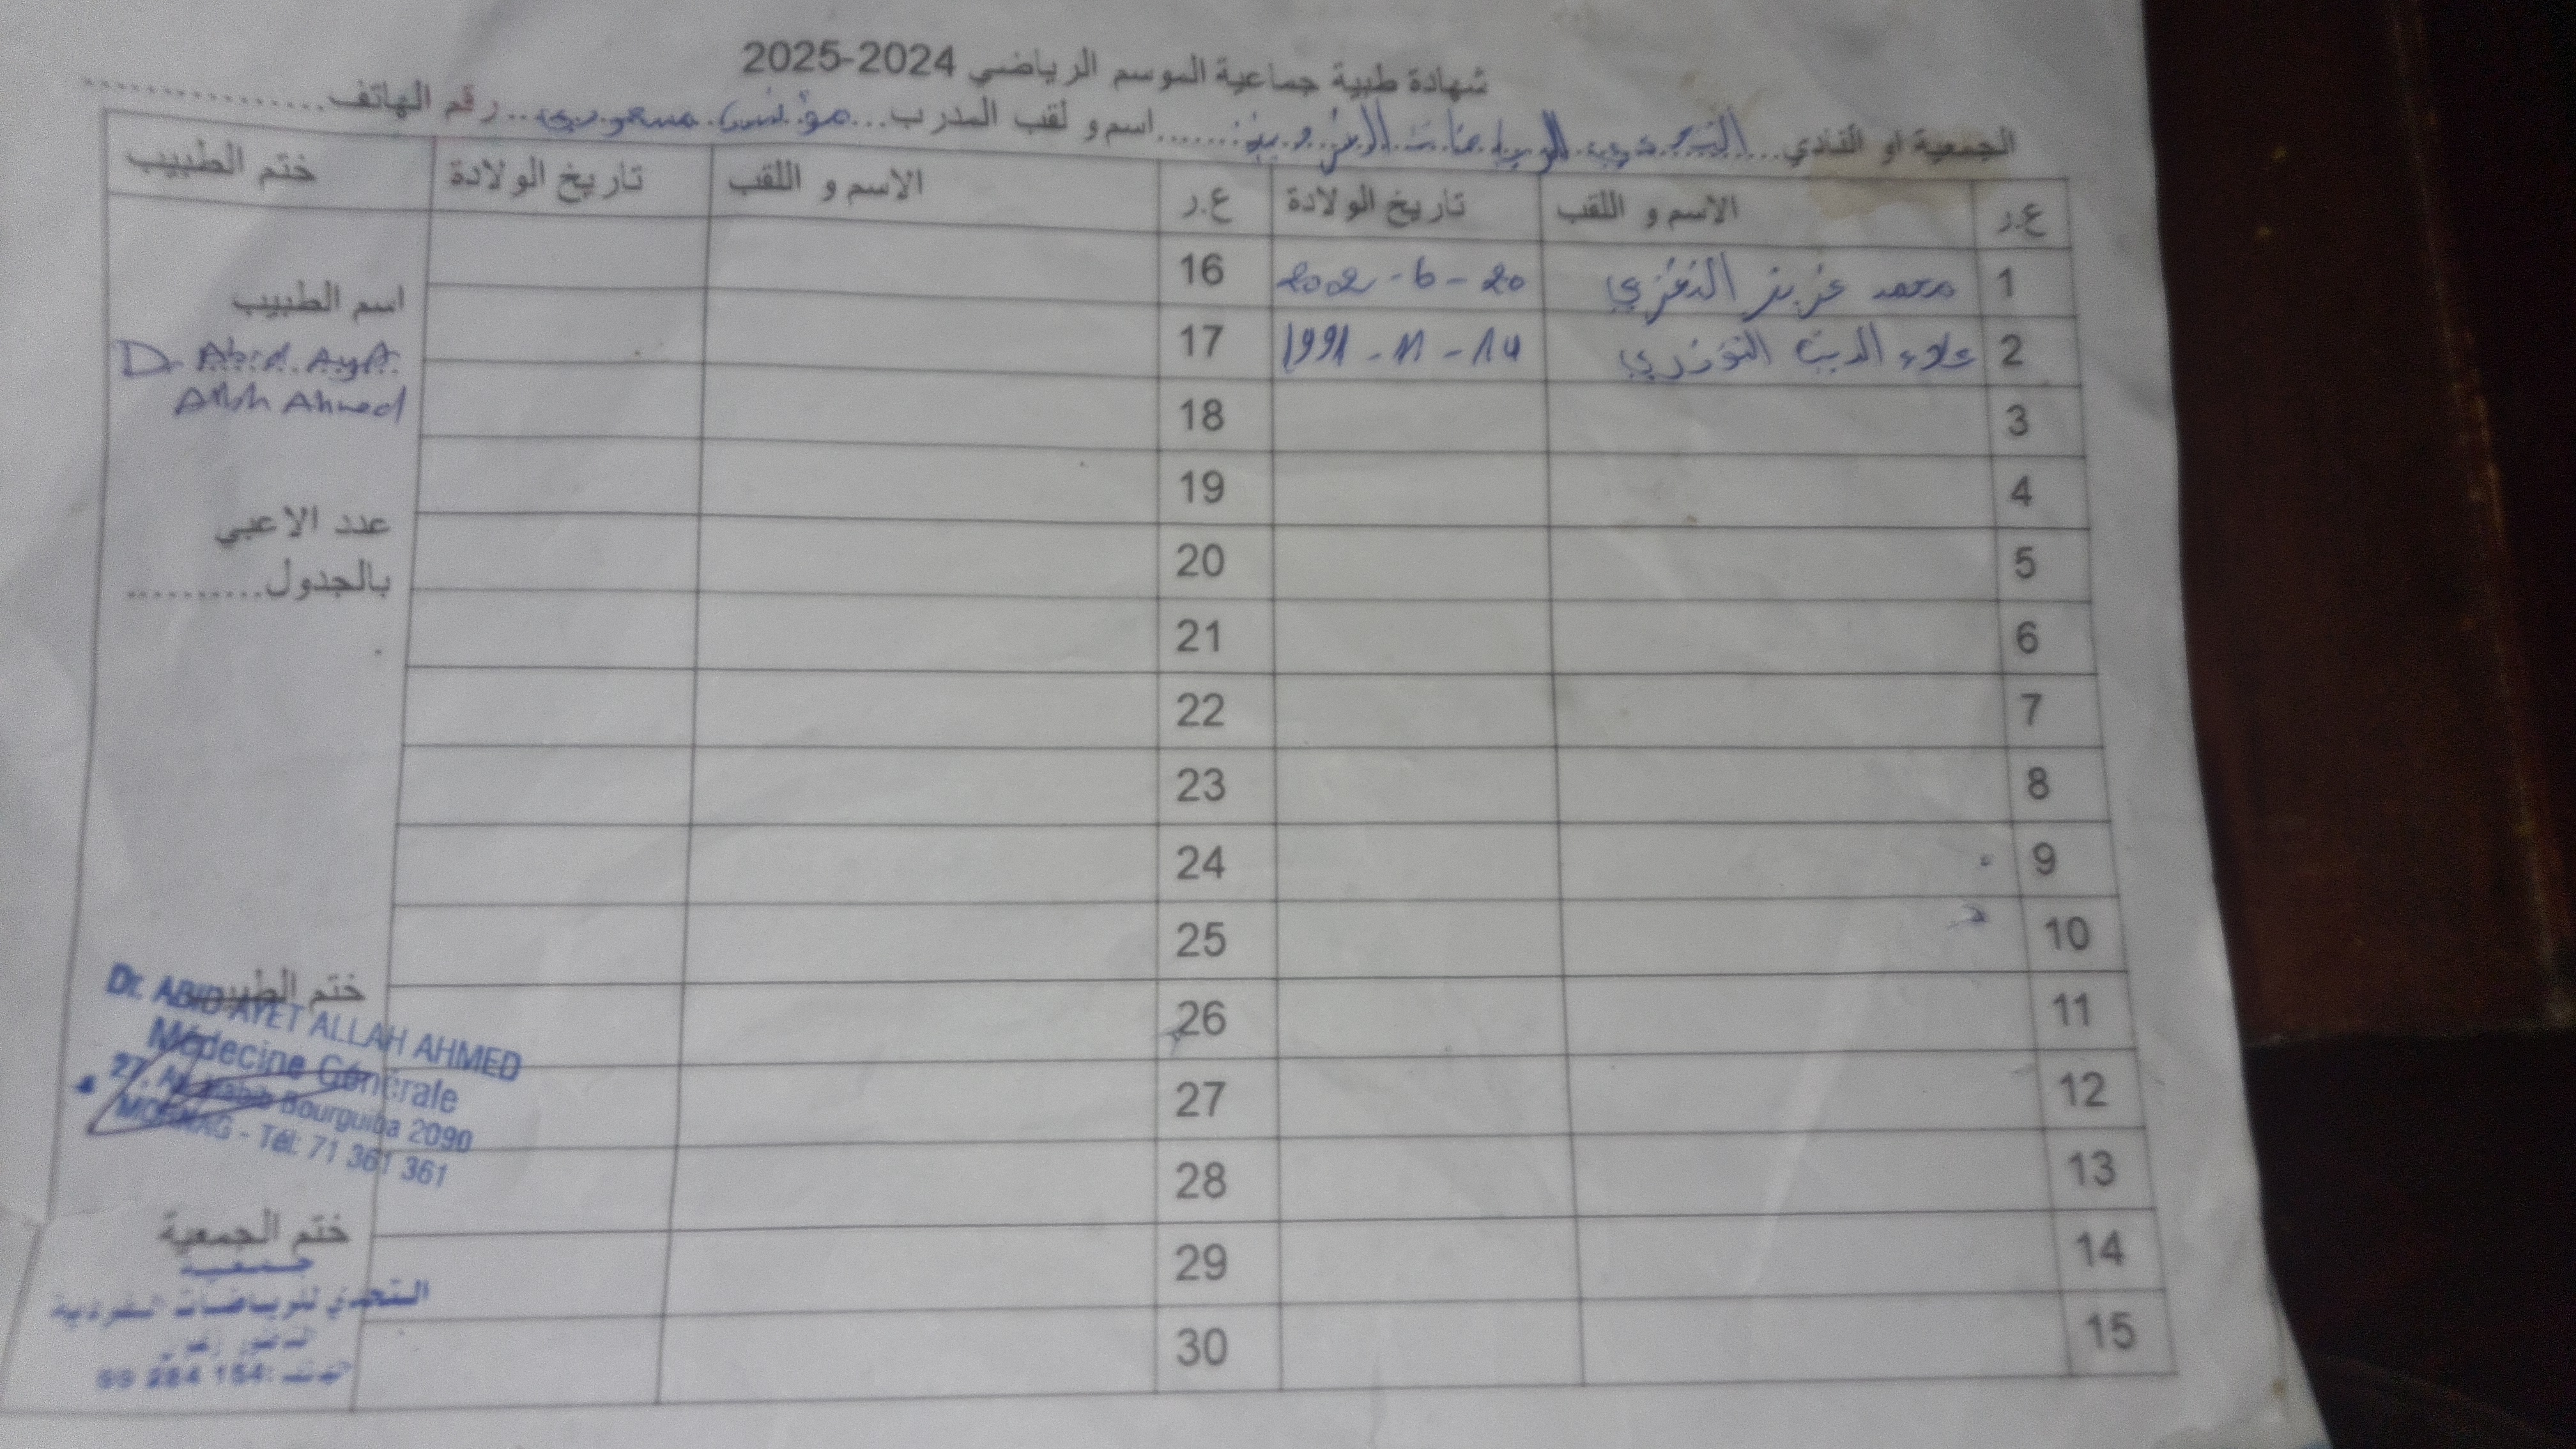 شهادة طبية جماعية الموسم الرياضي 2024-2025
الجمعية او النادي... التحدي للرياضات الفردية .......اسم و لقب المدرب... مؤنس مسعودي ...رقم الهاتف.................
ع.ر الاسم و اللقب تاريخ الولادة ع.ر الاسم و اللقب تاريخ الولادة ختم الطبيب
1 محمد عزيز النفزي 20 - 6 - 2002 16
2 علاء الدين التوزري 14 - 11 - 1991 17
3 18
4 19
5 20
6 21
7 22
8 23
9 24
10 25
11 26
12 27
13 28
14 29
15 30
اسم الطبيب
Dr Abid Ayet
Allah Ahmed
عدد الاعبي
بالجدول..........
ختم الطبيب
Dr. ABID AYET ALLAH AHMED
Médecine Générale
27, Av. Habib Bourguiba 2090
MORNAG - Tél: 71 361 361
ختم الجمعية
جمعية
التحدي للرياضات الفردية
284 154